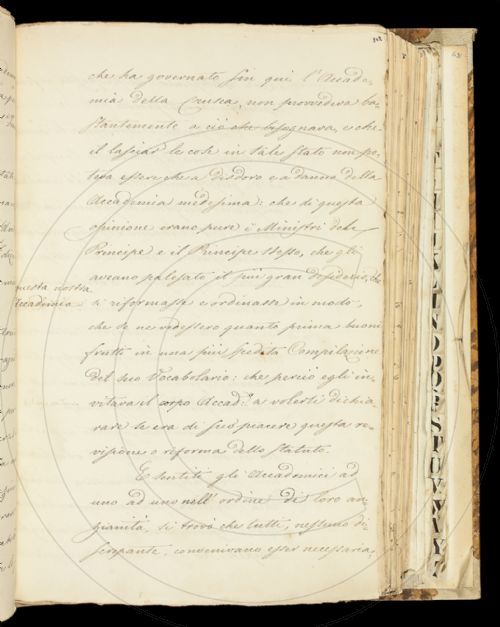 che ha governato sin qui l'Accade-
mia della Crusca, non provvideva ba-
stantemente a ciò che bisognava, e che
il lasciar le cose in tale stato non po-
teva essere che a disdoro e a danno della
Accademia medesima: che di questa
opinione erano pure i Ministri del
Principe e il Principe stesso, che gli
aveano palesato il più gran desiderio, che
questa nostra
Accademia
si riformasse e ordinasse in modo,
che se ne vedessero quanto prima buoni
frutti in una più spedita Compilazione
del suo Vocabolario: che perciò egli in-
vitava il corpo Accad.º a volersi dichia-
rare se era di suo piacere questa re-
visione e riforma dello Statuto.
E sentiti gli Accademici ad
uno ad uno nell'ordine di loro an-
zianità, si trovò che tutti, nessuno di-
screpante, convenivano esser necessaria,